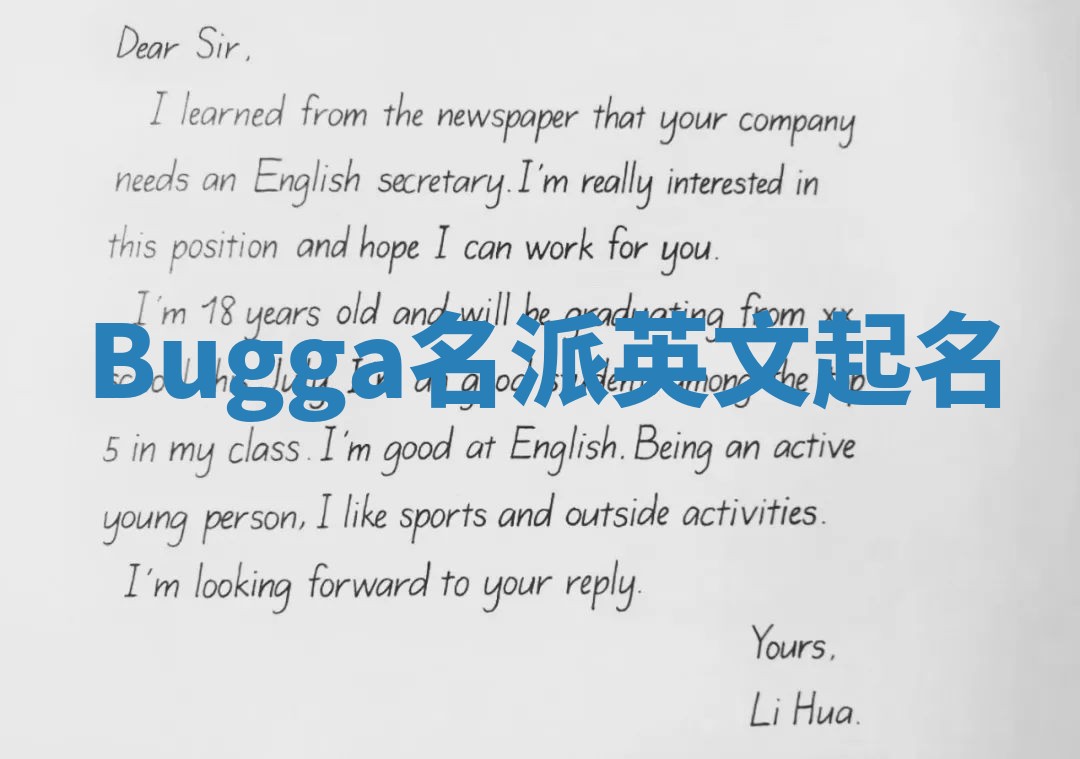 Dear Sir,
I learned from the newspaper that your company
needs an English secretary. I'm really interested in
this position and hope I can work for you.
I'm 18 years old and will be graduating from xx
Bugga名派英文起名
July. student among the top
5 in my class. I'm good at English. Being an active
young person, I like sports and outside activities.
I'm looking forward to your reply.
Yours,
Li Hua.